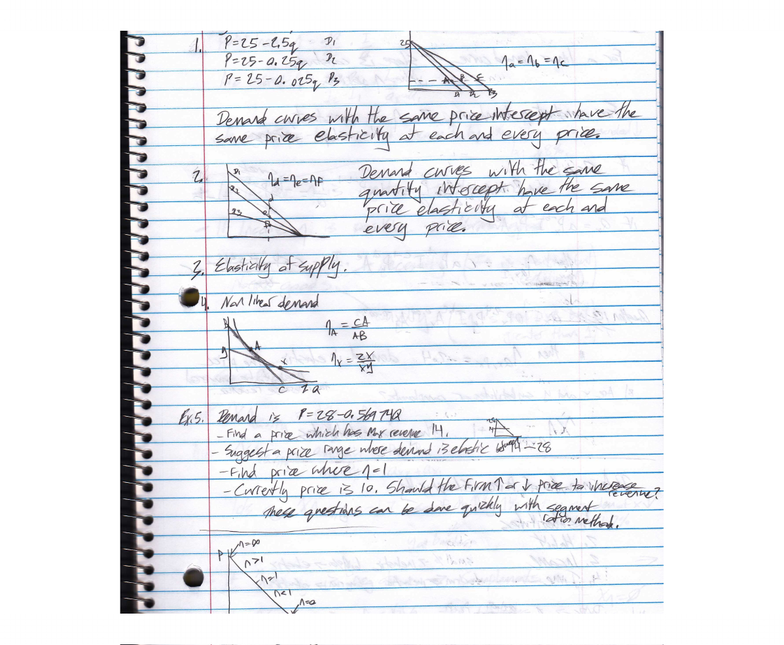 1. P=25-2.5q D1
P=25-0.25q D2
P=25-0.025q D3
25
ηa=ηb=ηc
Demand curves with the same price intercept have the
same price elasticity at each and every price.
2. ηd=ηe=ηf
Demand curves with the same
quantity intercept have the same
price elasticity at each and
every price.
3. Elasticity of supply.
4. Non linear demand
ηA = CA/AB
ηx = ZX/XY
A
x
C Z Q
Ex.5. Demand is P=28-0.56742Q
-Find a price which has Max revenue 14.
-Suggest a price range where demand is elastic 14-28
-Find price where η=1
-Currently price is 10. Should the firm ↑ or ↓ price to increase
revenue?
These questions can be done quickly with segment
ration method.
P
η=∞
η>1
η=1
η<1
η=0